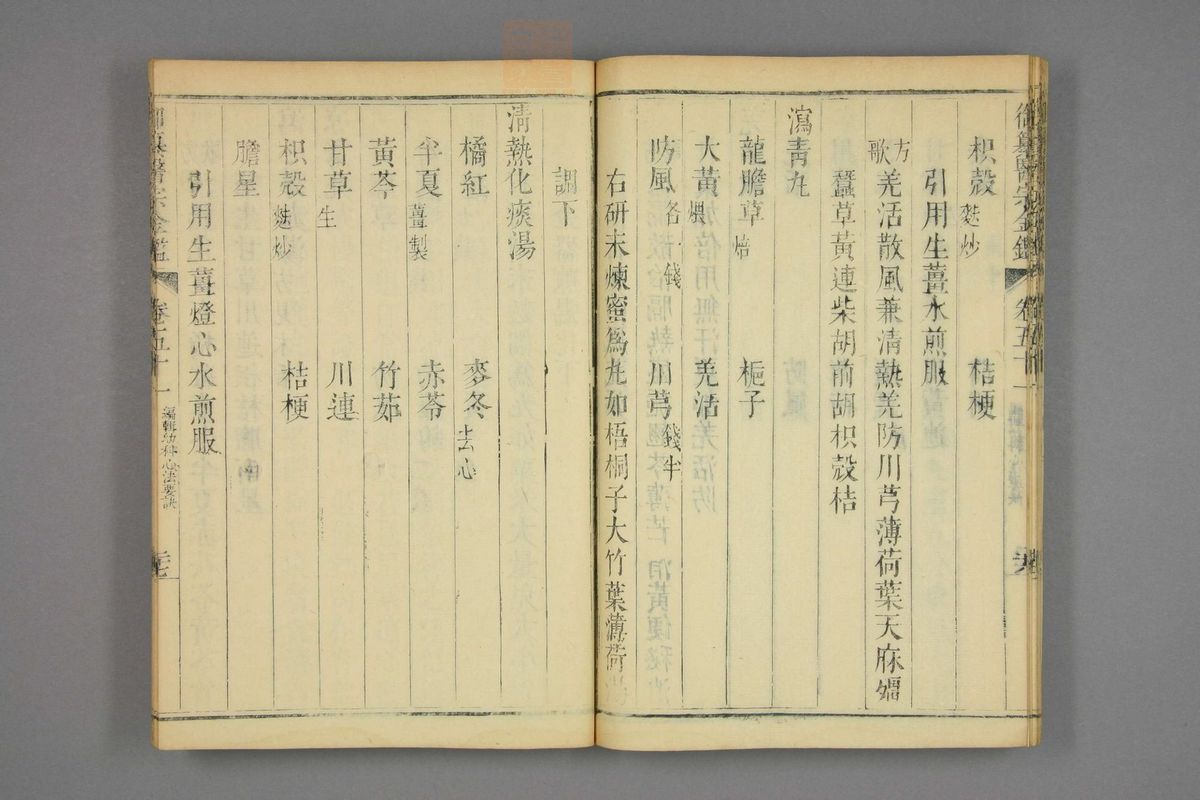 御纂醫宗金鑑 卷五十一
枳殼麩炒 桔梗
引用生薑水煎服
方歌 羌活散風兼清熱羌防川芎薄荷葉天麻殭
蠶草黃連柴胡前胡枳殼桔
瀉青丸
龍膽草焙 梔子
大黃煨 羌活
防風各一錢 川芎錢半
右研末煉蜜爲丸如梧桐子大竹葉薄荷湯
調下
清熱化痰湯
橘紅 麥冬去心
半夏薑製 赤苓
黃芩 竹茹
甘草生 川連
枳殼麩炒 桔梗
膽星
引用生薑燈心水煎服
御纂醫宗金鑑 卷五十一 編輯幼科心法要訣 二七